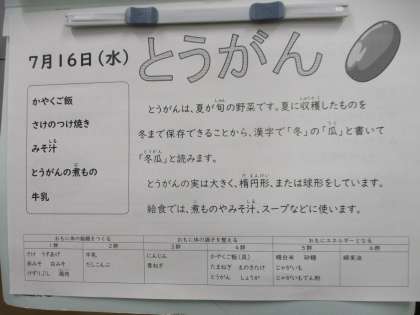 7月16日（水）
とうがん
かやくご飯
さけのつけ焼き
みそ汁
とうがんの煮もの
牛乳
とうがんは、夏が旬の野菜です。夏に収穫したものを
冬まで保存できることから、漢字で「冬」の「瓜」と書いて
「冬瓜」と読みます。
とうがんの実は大きく、楕円形、または球形をしています。
給食では、煮ものやみそ汁、スープなどに使います。
おもに体の組織をつくる おもに体の調子を整える おもにエネルギーとなる
1群 2群 3群 4群 5群 6群
さけ うすあげ 牛乳 にんじん かやくご飯（具） 精白米 砂糖 綿実油
赤みそ 白みそ だしこんぶ 青ねぎ たまねぎ えのきたけ じゃがいも
けずりぶし 鶏肉 とうがん しょうが じゃがいもでん粉